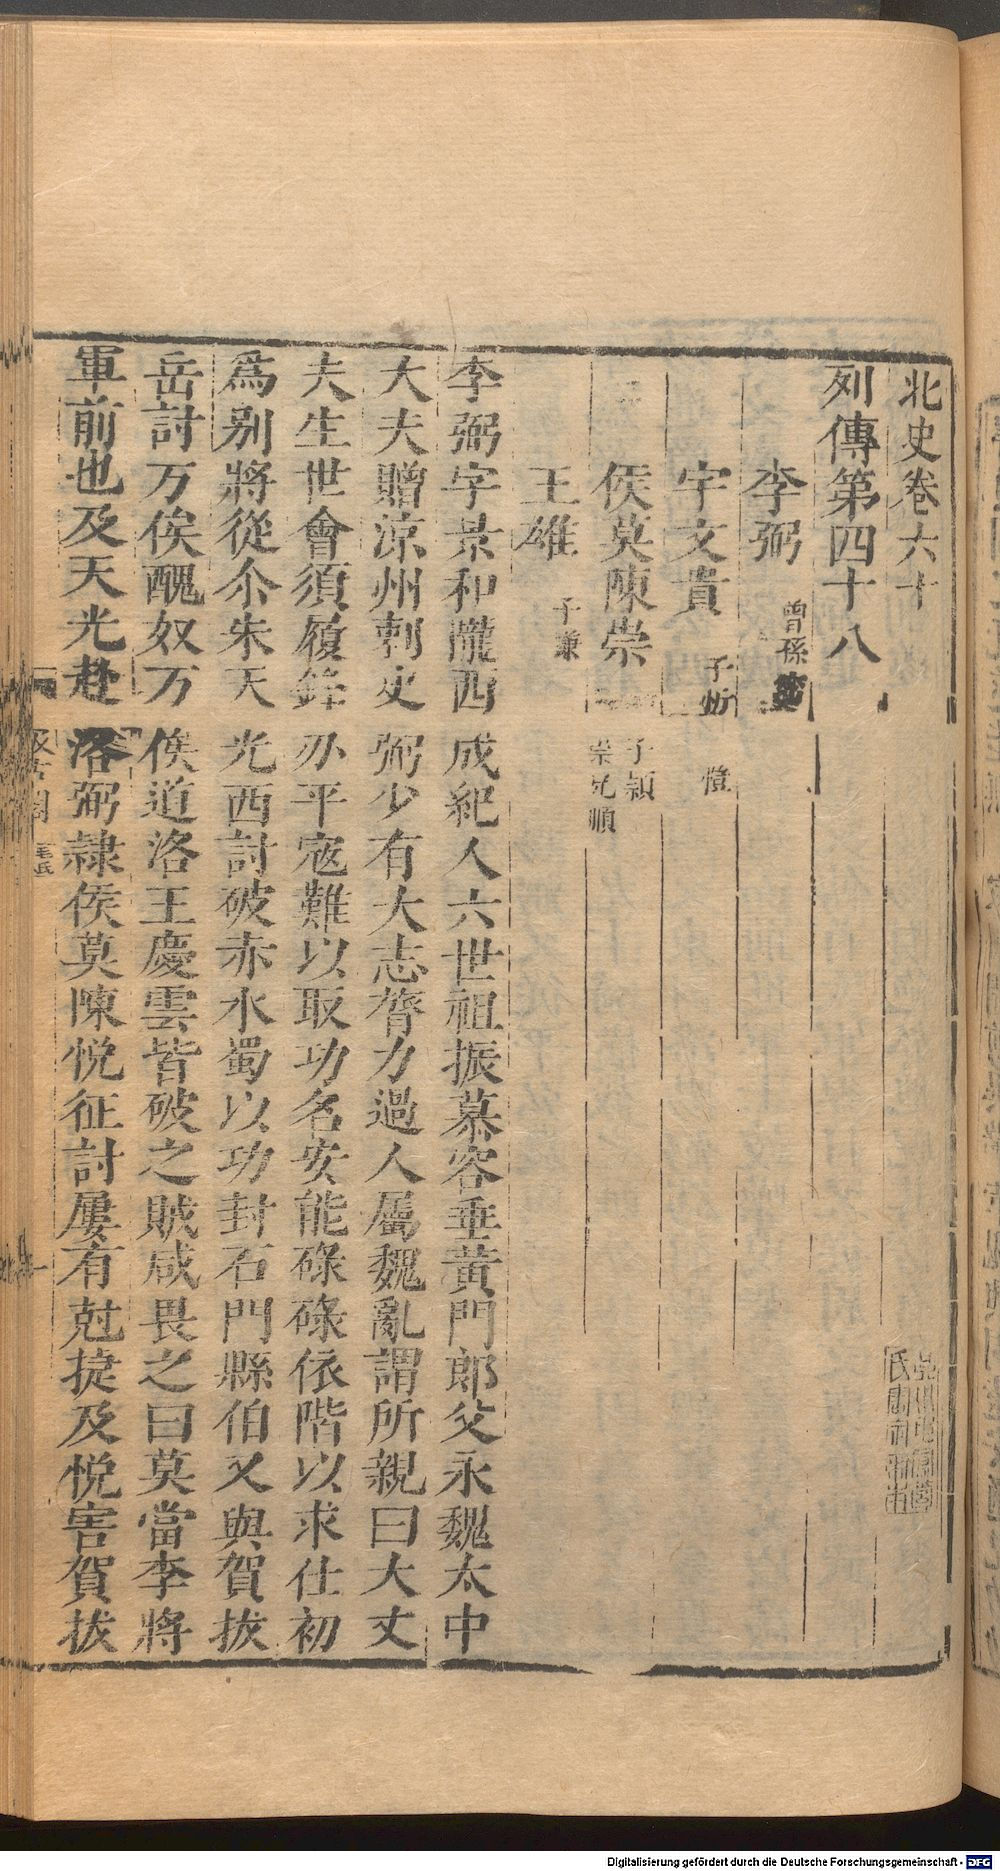 北史卷六十
列傳第四十八
李弼 曾孫密
宇文貴 子忻 愷
侯莫陳崇 子穎 崇兄順
王雄 子謙
李弼字景和隴西成紀人六世祖振慕容垂黃門郎父永魏太中
大夫贈涼州刺史弼少有大志膂力過人屬魏亂謂所親曰大丈
夫生世會須履鋒刃平寇難以取功名安能碌碌依階以求仕初
爲别將從尒朱天光西討破赤水蜀以功封石門縣伯又與賀拔
岳討万俟醜奴万俟道洛王慶雲皆破之賊咸畏之曰莫當李將
軍前也及天光赴洛弼隸侯莫陳悅征討屢有尅捷及悅害賀拔
汲古閣 毛氏
Digitalisierung gefördert durch die Deutsche Forschungsgemeinschaft - DFG